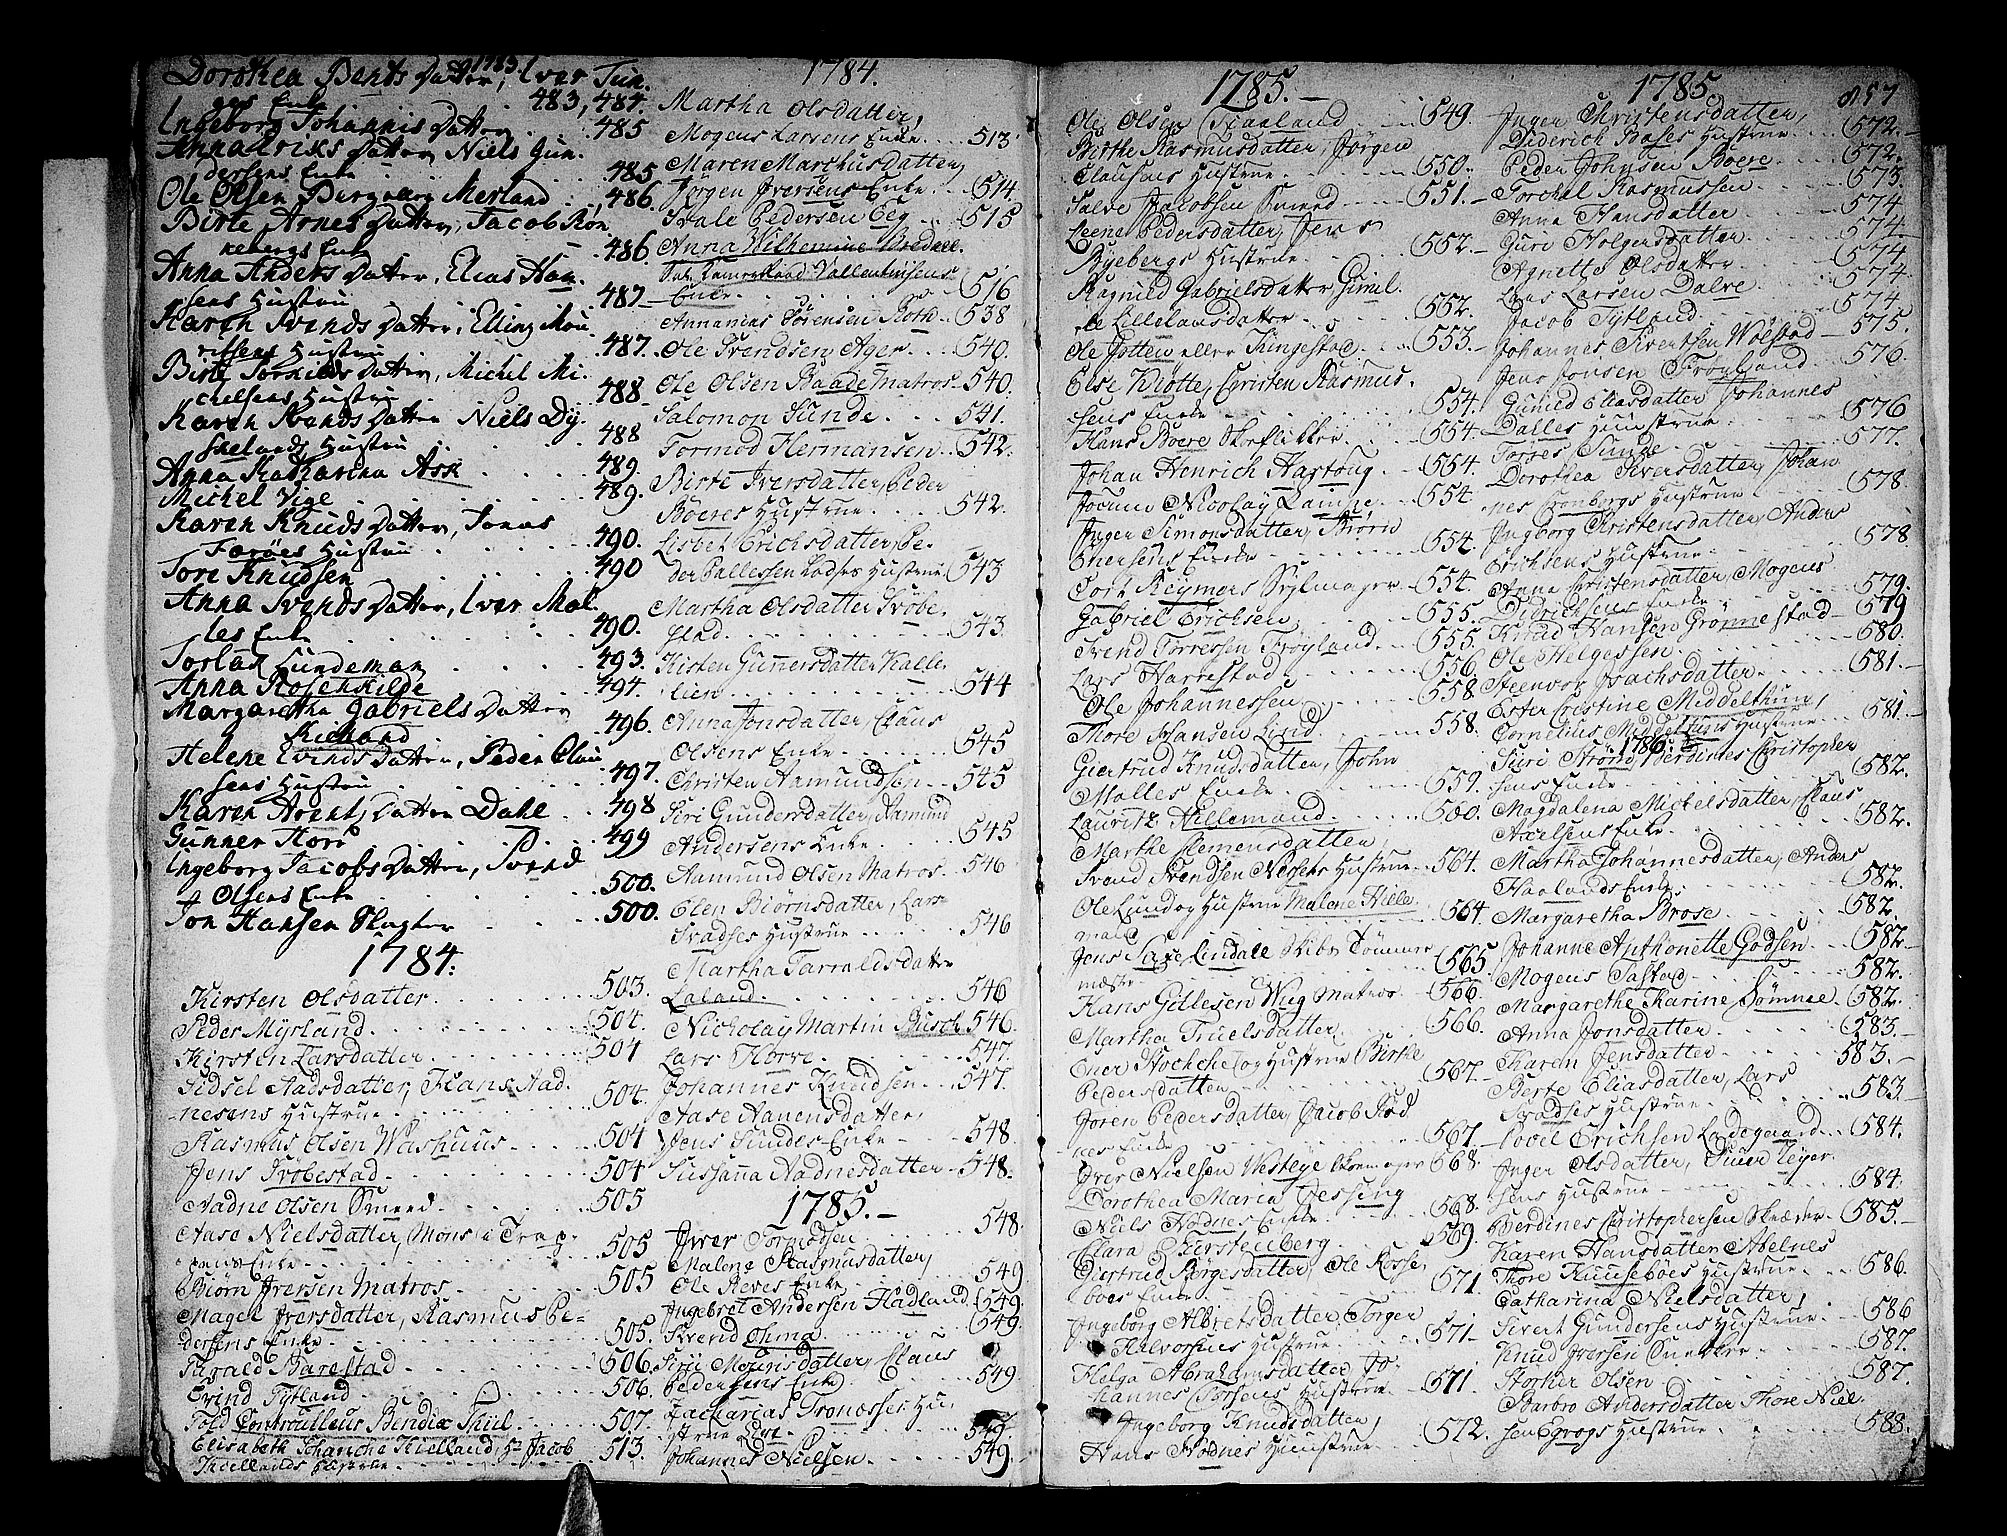 1783.
Dorothea Bentsdatter, Iver Tun.
ges Enke 483, 484.
Ingeborg Johannis Datter 485
Anna Eriks Datter, Niels Gun.
dersens Enke 485
Ole Olsen Merland 486.
Birte Arnes Datter, Jacob Ron
nebergs Enke 486
Anna Anders Datter, Elias Han.
sens Hustru 487
Karen Svends Datter, Elling Mou
ritsens Hustru 487.
Birte Torkilds Datter, Michel Mi.
chelsens Hustru 488
Karen Svends Datter Niels Dy.
Hustru 488
Anna Katharina Ask 489.
Michel Vige 489.
Karen Knuds Datter, Jonas
Færöes Hustru 490.
Tore Knudsen 490
Anna Svends Datter, Iver Mal.
les Enke 490.
Torlak Lundeman 493.
Anna Roschkilde 494.
Margaretha Gabriels Datter
Kielland 496.
Helene Evinds Datter, Peder Clau
sens Hustru 497
Karen Datter Dahl 498
Gunner Horr 499
Ingeborg Jacobs Datter, Svend
Olsens Enke 500.
Jon Hansen Slagter 500.
1784.
Kirsten Olsdatter 503.
Peder Myrland 504.
Kirsten Larsdatter 504
Sidsel Aadsdatter, Hans Aad.
nesens Hustrue 504.
Rasmus Olsen Washuus 504
Jens Trobestad 504
Aadne Olsen Smeed 505
Aase Nielsdatter, Mons i Trap.
pens Enke 505
Biörn Iversen Matros 505
Magel Iversdatter, Rasmus Pe=
dersens Enke 505.
Tarald Barestad 506.
Evind Tytland 506.
Told Controulleur Bendix Thiel 507.
Elisabeth Schanche Kielland, Hr Jacob
Kiellands Hustrue 513.
1784.
Martha Olsdatter,
Mogens Larsens Enke 513
Maren Marthusdatter,
Jörgen Iversens Enke 514.
Svale Pedersen Eeg 515
Anna Wilhemine Bredal
Sal. Kamerraad Vallentinsens
Enke 516
Annanias Sörensen Roth 538
Ole Svendsen Ager 540.
Ole Olsen Baade Matros 540.
Salomon Sunde 541.
Tormod Hermansen 542.
Birte Iversdatter, Peder
Böeres Hustrue 542.
Lisbet Erichsdatter, Pe.
der Pallessen Lodses Hustrue 543
Martha Olsdatter Tröbe.
stad 543.
Kisten Gunnersdatter Kalle.
lien 544
Anna Jonsdatter, Claus
Olsens Enke 545
Christen Aamundsen 545
Siri Gundersdatter, Aamund
Andersens Enke 545
Aamund Olsen Matros 546
Elen Biörnsdatter, Lars
Svadses Hustrue 546
Martha Tarraldsdatter
Laland 546
Nicholay Martin Busch 546.
Lars Horre 547.
Johannes Knudsen 547.
Aase Aanensdatter,
Jens Sundes Enke 548.
Sussana Aadnesdatter 548.
1785.
Iver Tormodsen 548.
Malene Rasmusdatter,
Ole Reves Enke 549
Ingebret Andersen Hadland 549.
Svend Ohma 549.
Siri Mouritsdatter, Claus
Pedersens Enke 549
Zacharias Tronæssens Hu.
strue 549.
Johannes Nielsen 549.
1785.
Ole Olsen Traaland 549.
Birthe Rasmusdatter, Jörgen
Clausens Hustrue 550.
Salve Jacobsen Smeed 551.
Leene Pedersdatter, Jens
Byebergs Hustrue 552.
Ragnild Gabrielsdatter, Gimil.
de Lillelansdatter 552.
Ole Jotten eller Tungestad 553.
Else Klotte, Christen Rasmus.
sens Enke 554.
Hans Boere Skoflikker 554.
Johan Henrich Hartoug 554.
Jocum Nicolay Lainge 554
Inger Simonsdatter, Biörn
Enersens Enke 554.
Tort Reymers Seylmager 554.
Gabriel Erichsen 555.
Svend Torressen Fröyland 555.
Lars Harrestad 556.
Ole Johannessen 558
Thore Hansen Lund 558.
Giertrud Knudsdatter, John
Malles Enke 559.
Lauritz Hellemand 560.
Marthe Clemensdatter,
Svend Svendsen Nessets Hustrue 564.
Ole Lund og Hustrue Malene Hille
graae 564.
Jens Saxe Lindale Skibs Tömmer
mester 565.
Hans Gillesen Wug Matros 566.
Martha Truelsdatter 566.
Ener Hochche og Hustrue Birthe
Pedersdatter 567.
Joren Pedersdatter, Jacob Rod
nes Enke 567.
Iver Nielsen Westeye Skomager 568.
Dorothea Maria Jessing
Niels Nodnes Enke 568.
Clara Furstenberg 569
Giertrud Börgesdatter, Ole Kosse
boes Enke 571
Ingeborg Albretsdatter, Torger
Halvorsens Hustrue 571
Helga Abrahamsdatter, Jo.
hannes Hustrue 571.
Ingeborg Knudsdatter,
Hans Nodnes Huustrue 572.
1785.
857
Inger Christensdatter,
Diderich Bases Hustrue 572.
Peder Johnsen Boere 572.
Torchel Rasmussen 573.
Anna Hansdatter 574
Guri Holgersdatter 574
Agnette Olsdatter 574
Lars Larsen Dalve 574
Jacob Tytland 574.
Johannes Sivertsen Wolstad 575.
Jens Jonsen Fröyland 576.
Gunild Eliasdatter, Johannes
Dalles Huustrue 576
Torres Sunde 577.
Dorothea Siversdatter, Johan
nes Cronbergs Hustrue 578.
Ingborg Kristensdatter, Anders
Erichsens Hustrue 578
Anna Christensdatter, Mogens
Didrichsens Enke 579.
Knud Hansen Grönnestad 579
Ole Helgessen 580.
Steenvor Isachsdatter 581.
Ester Cristine Middelthuun,
Cornelius Middelthuns Hustrue 581.
1786.
Siri Strönd, Berdines Christopher
sens Enke 582.
Magdalena Michelsdatter, Claus
Axelsens Enke 582.
Martha Johannesdatter, Anders
Haalands Enke 582.
Margaretha Brose 582.
Johanne Anthonette Godsen 582
Mogens Tastad 582.
Margarethe Karine Sömme 582.
Anna Jonsdatter 583.
Karen Jensdatter 583.
Berte Eliasdatter, Lars
Svadses Hustrue 583.
Povel Erichsen Ladegaard 584.
Inger Olsdatter,
sens Hustrue 584.
Berdines Christophersen Skræder 585.
Karen Hansdatter Abelnes
Thore Hustrue 586.
Catharina Nielsdatter,
Sivert Gundersens Hustrue 586
Knud Iversen Snekker 587.
Storker Olsen 587.
Barbro Aadersdatter Thore Niel
sen Hustrue 588.